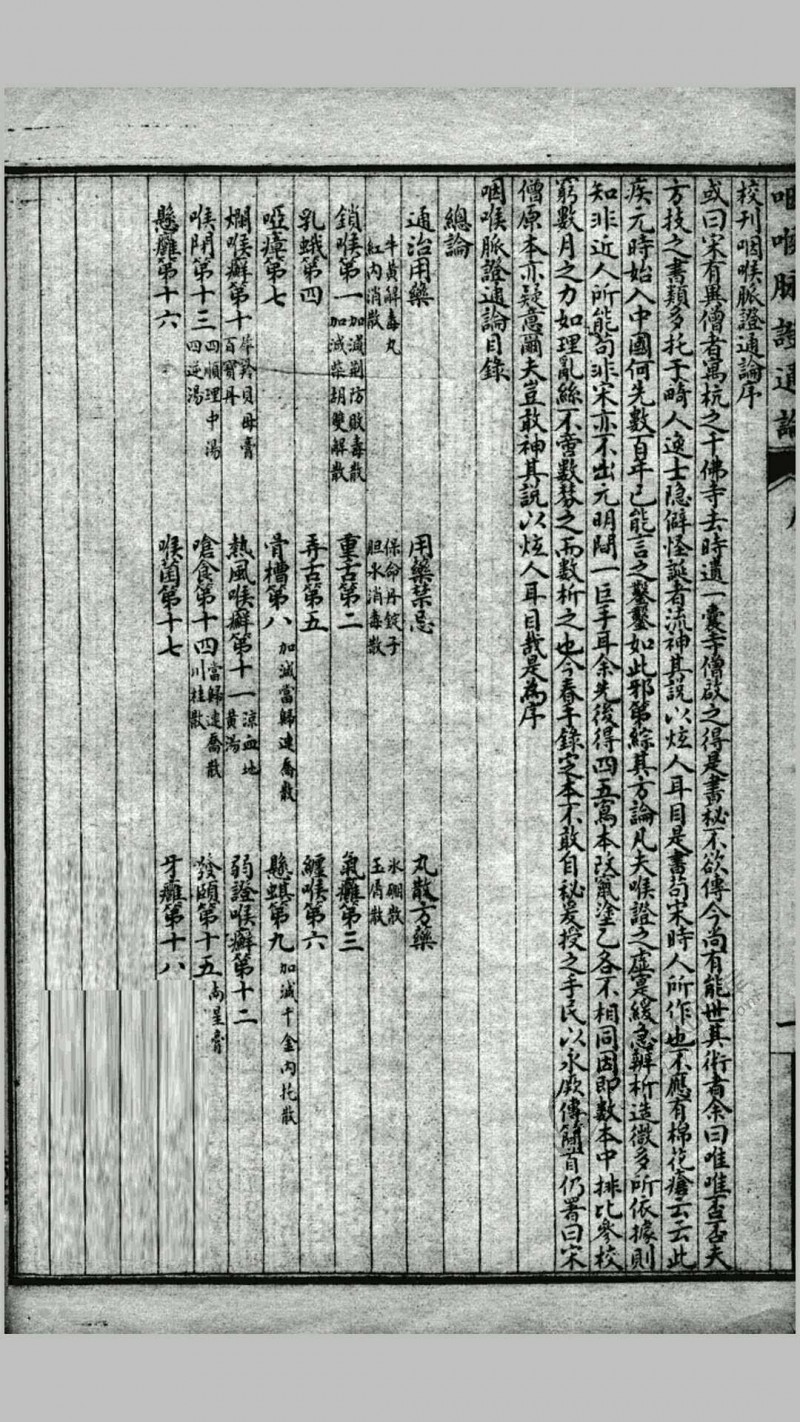 咽喉脉證通論
九
一
校刊咽喉脈證通論序
或曰宋有異僧者寓杭之千佛寺去時遺一囊寺僧啟之得是書秘不欲傳今尚有能世其術者余曰唯唯否否夫
方技之書類多托于畸人逸士隐僻怪誕者流神其説以炫人耳目是書苟宋時人所作也不應有棉花瘡云云此
疾元時始入中國何先數百年已能言之鑿鑿如此邪第綜其方論凡夫喉證之虛寔緩急辨析造微多所依據則
知非近人所能苟非宋亦不出元明間一巨手耳余先後得四五寫本改竄塗乙各不相同因即數本中排比參校
窮數月之力如理亂絲不啻數棼之而數析之也今春手錄定本不敢自秘爰授之手民以永厥傳簡首仍署曰宋
僧原本亦疑意爾夫豈敢神其説以炫人耳目哉是為序
咽喉脈證通論目錄
總論
通治用藥 用藥禁忌 丸散方藥
牛黄解毒丸 保命丹錠子 氷硼散
紅内消散 胆氷消毒散 玉屑散
鎖喉第一 加減荆防敗毒散 加減柴胡雙解散 重舌第二 氣癰第三
乳蛾第四 弄舌第五 纏喉第六
啞瘴第七 骨槽第八 加減當歸連喬散 懸蜞第九 加減千金内托散
爛喉癬第十 犀羚貝母膏 百寶丹 熱風喉癬第十一 涼血地黄湯 弱證喉癬第十二
喉閉第十三 四順理中湯 四逆湯 嗆食第十四 當歸連喬散 川桂散 發頤第十五 南星膏
懸癰第十六 喉菌第十七 牙癰第十八